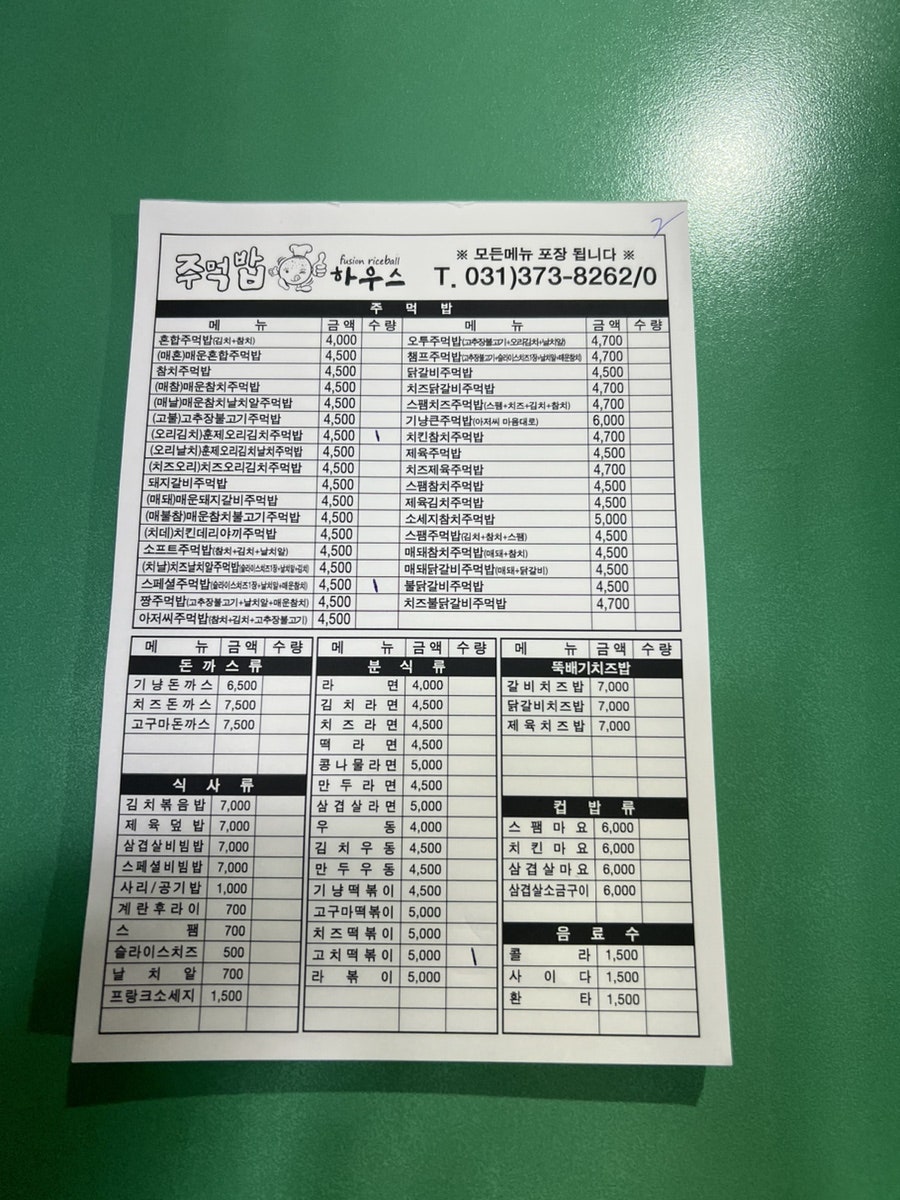 2
주먹밥 하우스
fusion riceball
※ 모든메뉴 포장 됩니다 ※
T. 031)373-8262/0
주 먹 밥
메 뉴 금액 수량 메 뉴 금액 수량
혼합주먹밥(김치+참치) 4,000 오투주먹밥(고추장불고기+오리김치+날치알) 4,700
(매혼)매운혼합주먹밥 4,500 챔프주먹밥(고추장불고기+슬라이스치즈1장+날치알+매운참치) 4,700
참치주먹밥 4,500 닭갈비주먹밥 4,500
(매참)매운참치주먹밥 4,500 치즈닭갈비주먹밥 4,700
(매날)매운참치날치알주먹밥 4,500 스팸치즈주먹밥(스팸+치즈+김치+참치) 4,700
(고불)고추장불고기주먹밥 4,500 기냥큰주먹밥(아저씨 마음대로) 6,000
(오리김치)훈제오리김치주먹밥 4,500 \ 치킨참치주먹밥 4,700
(오리날치)훈제오리김치날치주먹밥 4,500 제육주먹밥 4,500
(치즈오리)치즈오리김치주먹밥 4,500 치즈제육주먹밥 4,700
돼지갈비주먹밥 4,500 스팸참치주먹밥 4,500
(매돼)매운돼지갈비주먹밥 4,500 제육김치주먹밥 4,500
(매불참)매운참치불고기주먹밥 4,500 소세지참치주먹밥 5,000
(치데)치킨데리야끼주먹밥 4,500 스팸주먹밥(김치+참치+스팸) 4,500
소프트주먹밥(참치+김치+날치알) 4,500 매돼참치주먹밥(매돼+참치) 4,500
(치날)치즈날치알주먹밥(슬라이스치즈1장+날치알+김치) 4,500 매돼닭갈비주먹밥(매돼+닭갈비) 4,500
스페셜주먹밥(슬라이스치즈1장+날치알+매운참치) 4,500 \ 불닭갈비주먹밥 4,500
짱주먹밥(고추장불고기+날치알+매운참치) 4,500 치즈불닭갈비주먹밥 4,700
아저씨주먹밥(참치+김치+고추장불고기) 4,500
메 뉴 금액 수량
돈 까 스 류
기냥돈까스 6,500
치즈돈까스 7,500
고구마돈까스 7,500
식 사 류
김치볶음밥 7,000
제육덮밥 7,000
삼겹살비빔밥 7,000
스페셜비빔밥 7,000
사리/공기밥 1,000
계란후라이 700
스 팸 700
슬라이스치즈 500
날 치 알 700
프랑크소세지 1,500
메 뉴 금액 수량
분 식 류
라 면 4,000
김치라면 4,500
치즈라면 4,500
떡 라 면 4,500
콩나물라면 5,000
만두라면 4,500
삼겹살라면 5,000
우 동 4,000
김치우동 4,500
만두우동 4,500
기냥떡볶이 4,500
고구마떡볶이 5,000
치즈떡볶이 5,000
고치떡볶이 5,000 \
라 볶 이 5,000
메 뉴 금액 수량
뚝배기치즈밥
갈비치즈밥 7,000
닭갈비치즈밥 7,000
제육치즈밥 7,000
컵 밥 류
스팸마요 6,000
치킨마요 6,000
삼겹살마요 6,000
삼겹살소금구이 6,000
음 료 수
콜 라 1,500
사 이 다 1,500
환 타 1,500